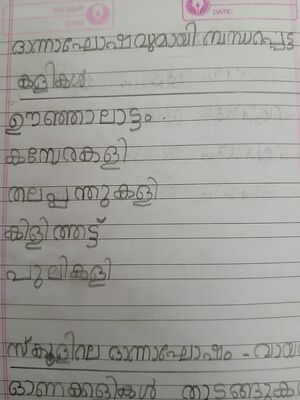 DATE:
ഓണാഘോഷവുമായി ബന്ധപ്പെട്ട
കളികൾ
ഊഞ്ഞാലാട്ടം.
കസേരകളി
തലപ്പന്തുകളി
കിളിത്തട്ട്
പുലികളി
സ്കൂളിലെ ഓണാഘോഷം -
ഓണക്കളികൾ